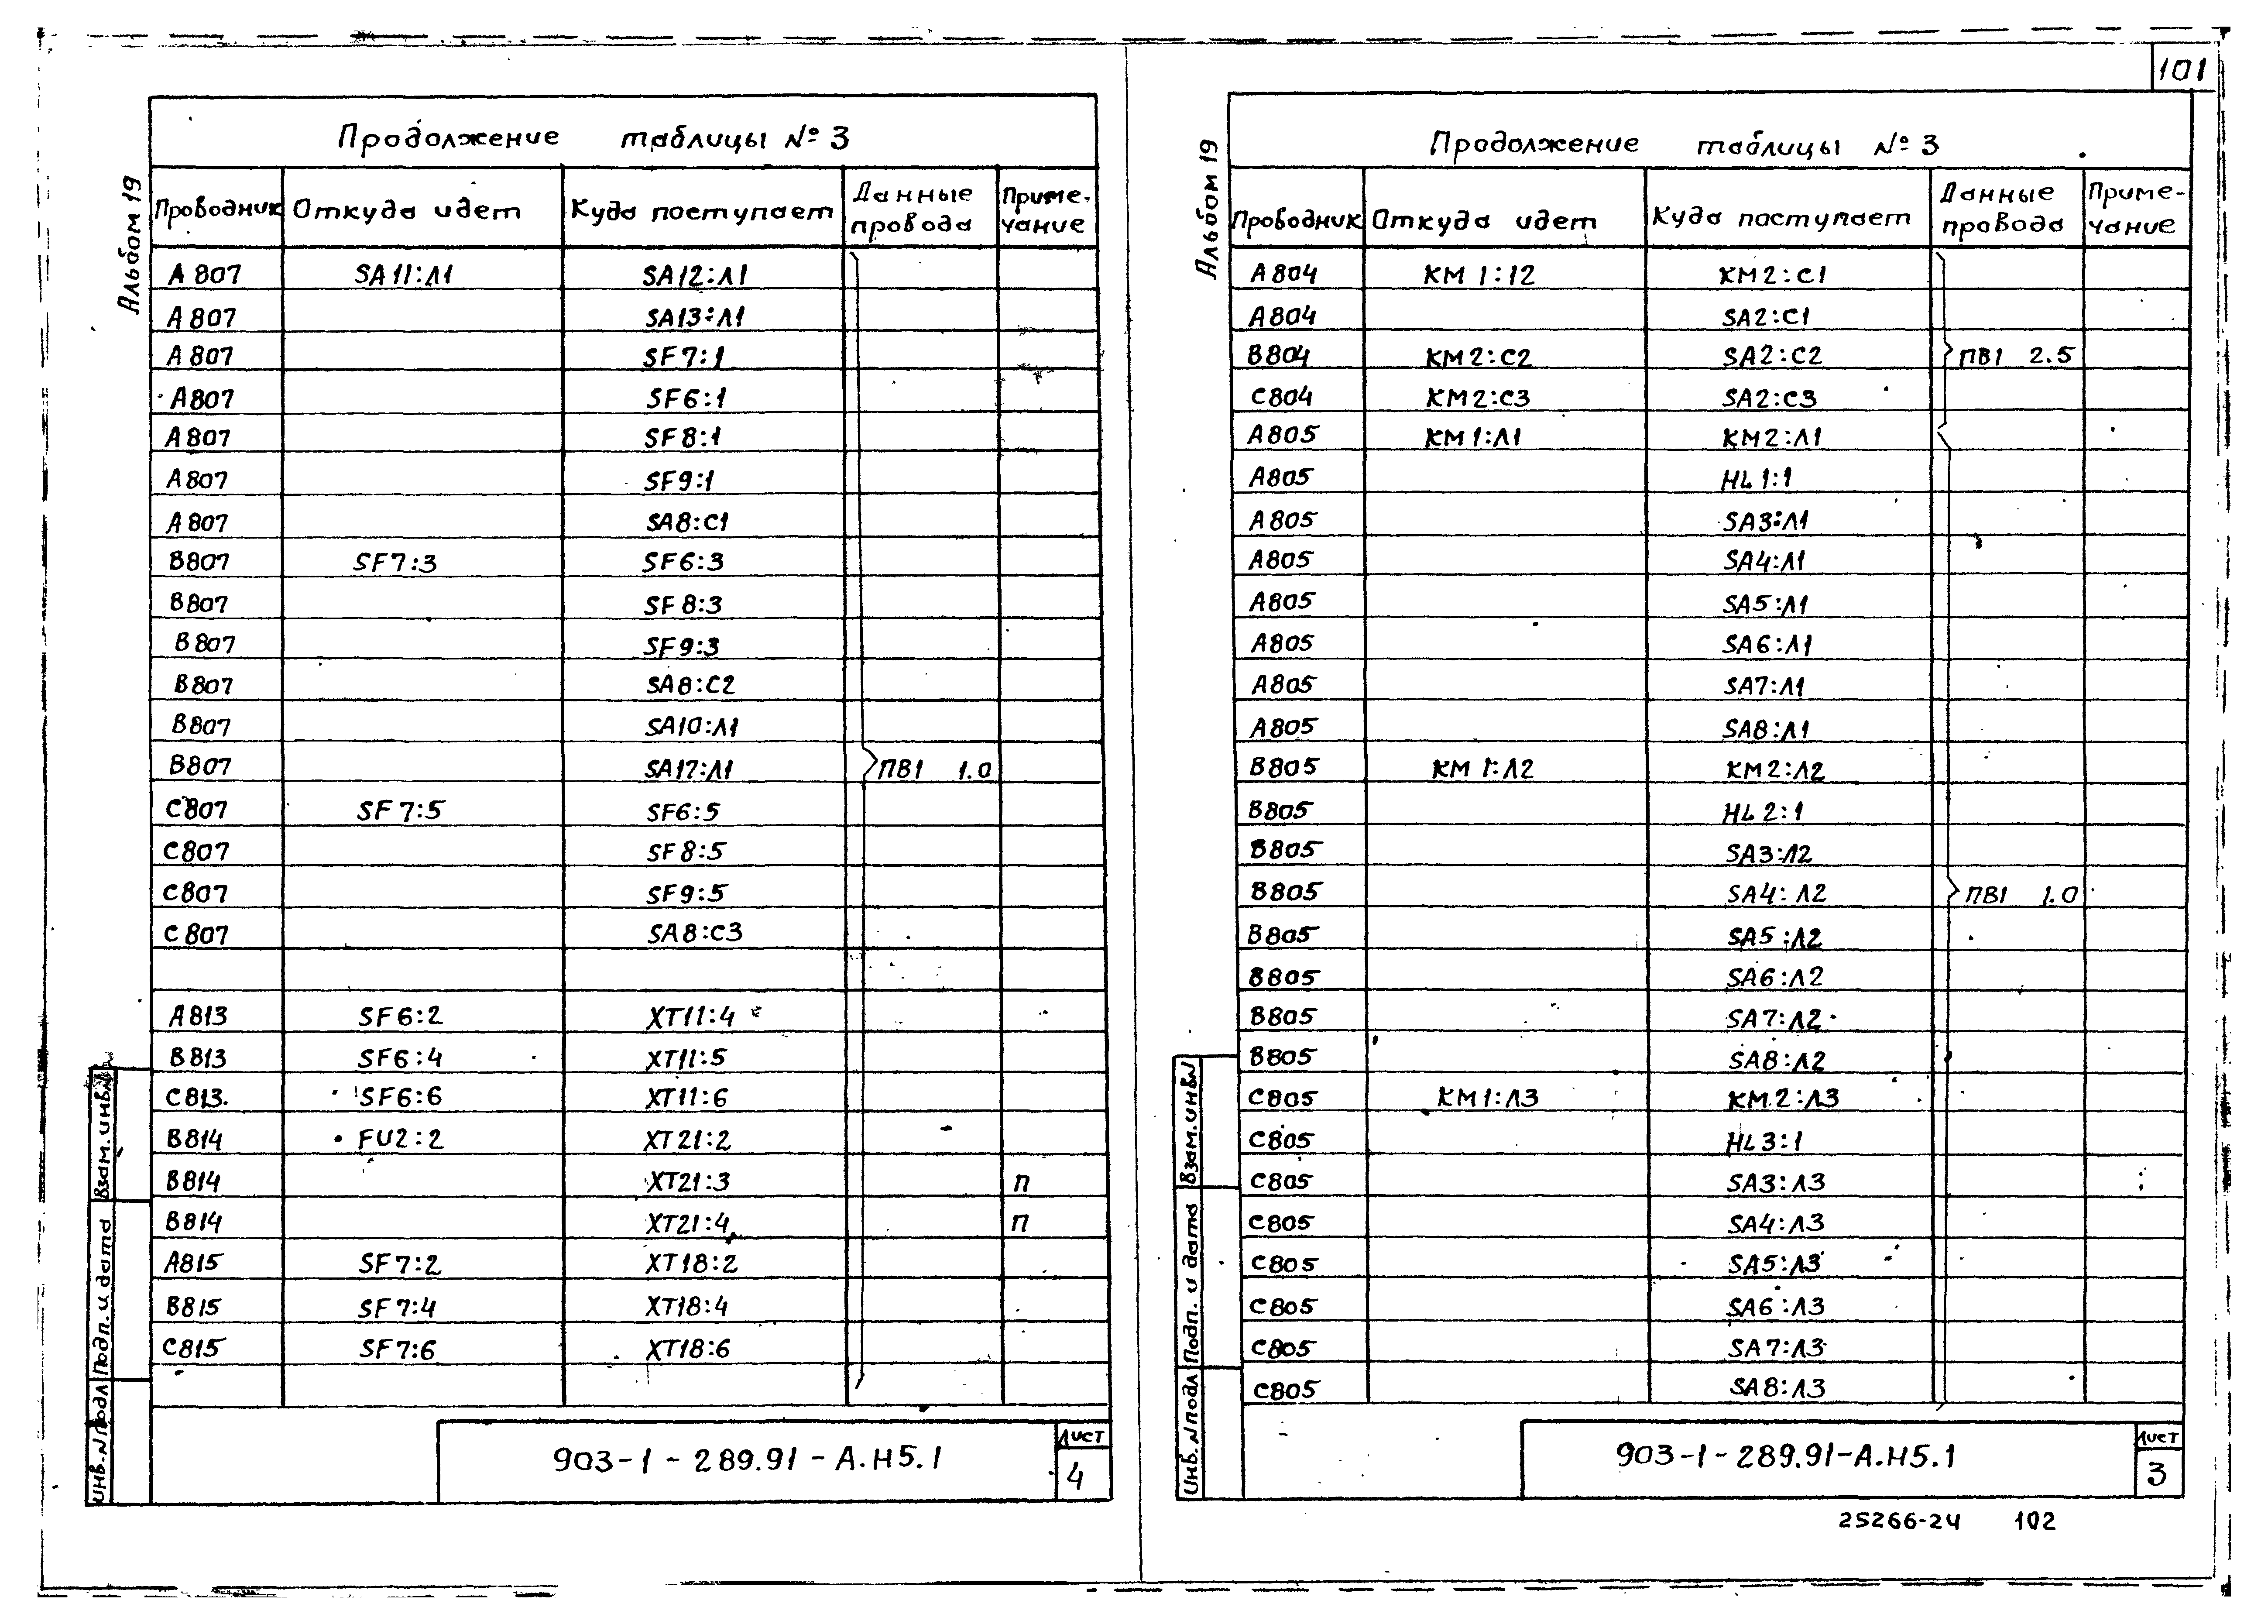 101
Альбом 19
Продолжение таблицы № 3
Проводник Откуда идет Куда поступает Данные провода Приме-чание
А807 SA11:Л1 SA12:Л1
А807 SA13:Л1
А807 SF7:1
А807 SF6:1
А807 SF8:1
А807 SF9:1
А807 SA8:С1
В807 SF7:3 SF6:3
В807 SF8:3
В807 SF9:3
В807 SA8:С2
В807 SA10:Л1
В807 SA17:Л1 ПВ1 1.0
С807 SF7:5 SF6:5
С807 SF8:5
С807 SF9:5
С807 SA8:С3
А813 SF6:2 XT11:4
В813 SF6:4 XT11:5
С813 SF6:6 XT11:6
В814 FU2:2 XT21:2
В814 XT21:3 П
В814 XT21:4 П
А815 SF7:2 XT18:2
В815 SF7:4 XT18:4
С815 SF7:6 XT18:6
Взам.инв№
Подп. и дата
Инв.№подл
903-1-289.91-А.Н5.1
Лист
4
Альбом 19
Продолжение таблицы № 3
Проводник Откуда идет Куда поступает Данные провода Приме-чание
А804 KM1:12 KM2:С1
А804 SA2:С1
В804 KM2:С2 SA2:С2 ПВ1 2.5
С804 KM2:С3 SA2:С3
А805 KM1:Л1 KM2:Л1
А805 HL1:1
А805 SA3:Л1
А805 SA4:Л1
А805 SA5:Л1
А805 SA6:Л1
А805 SA7:Л1
А805 SA8:Л1
В805 KM1:Л2 KM2:Л2
В805 HL2:1
В805 SA3:Л2
В805 SA4:Л2 ПВ1 1.0
В805 SA5:Л2
В805 SA6:Л2
В805 SA7:Л2
В805 SA8:Л2
С805 KM1:Л3 KM2:Л3
С805 HL3:1
С805 SA3:Л3
С805 SA4:Л3
С805 SA5:Л3
С805 SA6:Л3
С805 SA7:Л3
С805 SA8:Л3
Взам.инв№
Подп. и дата
Инв.№подл
903-1-289.91-А.Н5.1
Лист
3
25266-24 102